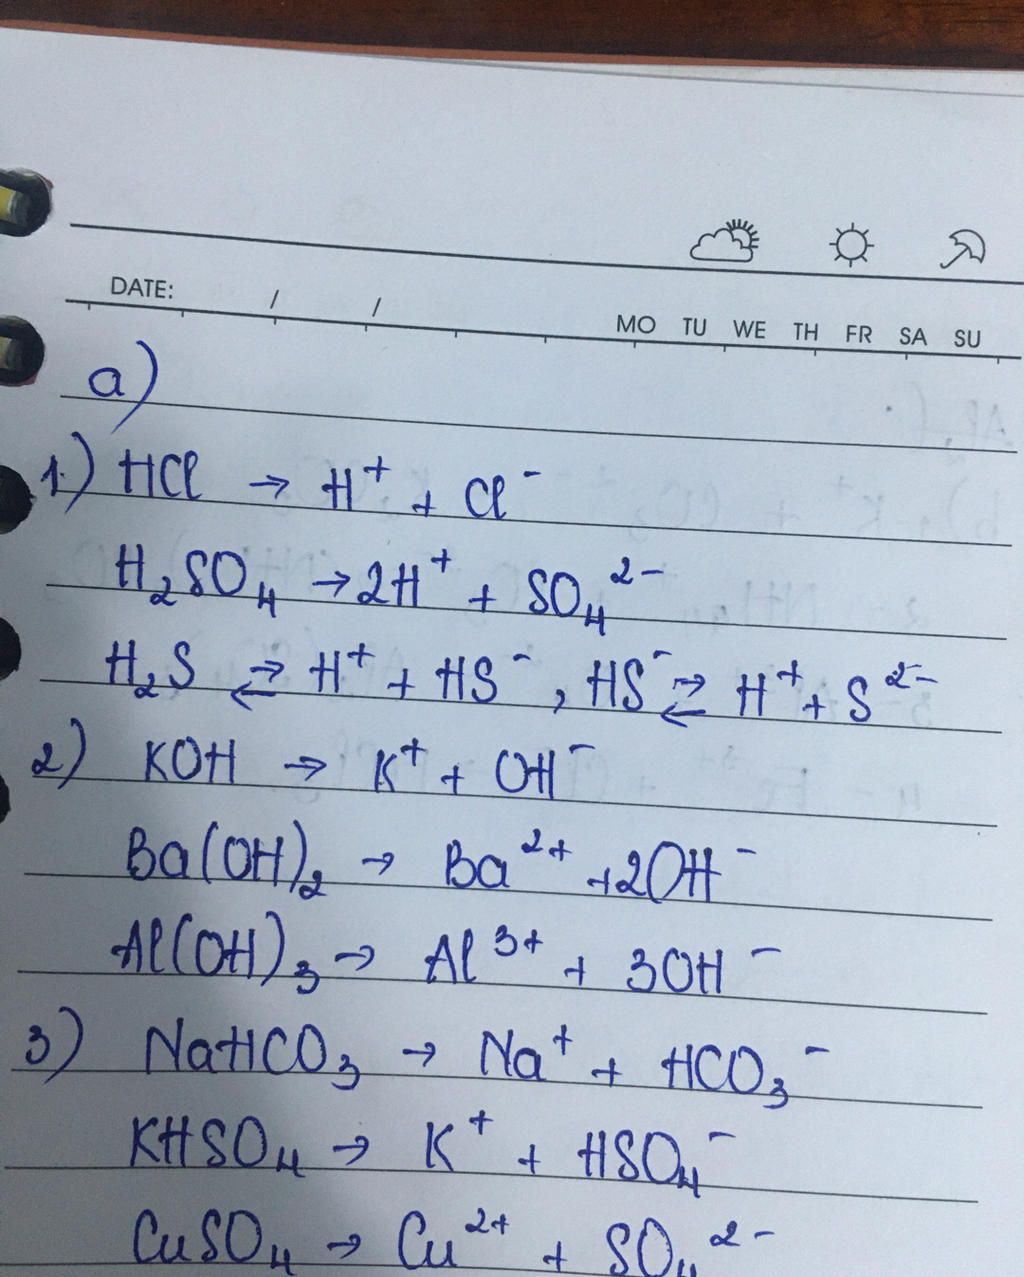 DATE: / /
MO TU WE TH FR SA SU
a)
1.) HCl → H⁺ + Cl⁻
H₂SO₄ → 2H⁺ + SO₄²⁻
H₂S ⇄ H⁺ + HS⁻ , HS⁻ ⇄ H⁺ + S²⁻
2) KOH → K⁺ + OH⁻
Ba(OH)₂ → Ba²⁺ + 2OH⁻
Al(OH)₃ → Al³⁺ + 3OH⁻
3) NaHCO₃ → Na⁺ + HCO₃⁻
KHSO₄ → K⁺ + HSO₄⁻
CuSO₄ → Cu²⁺ + SO₄²⁻